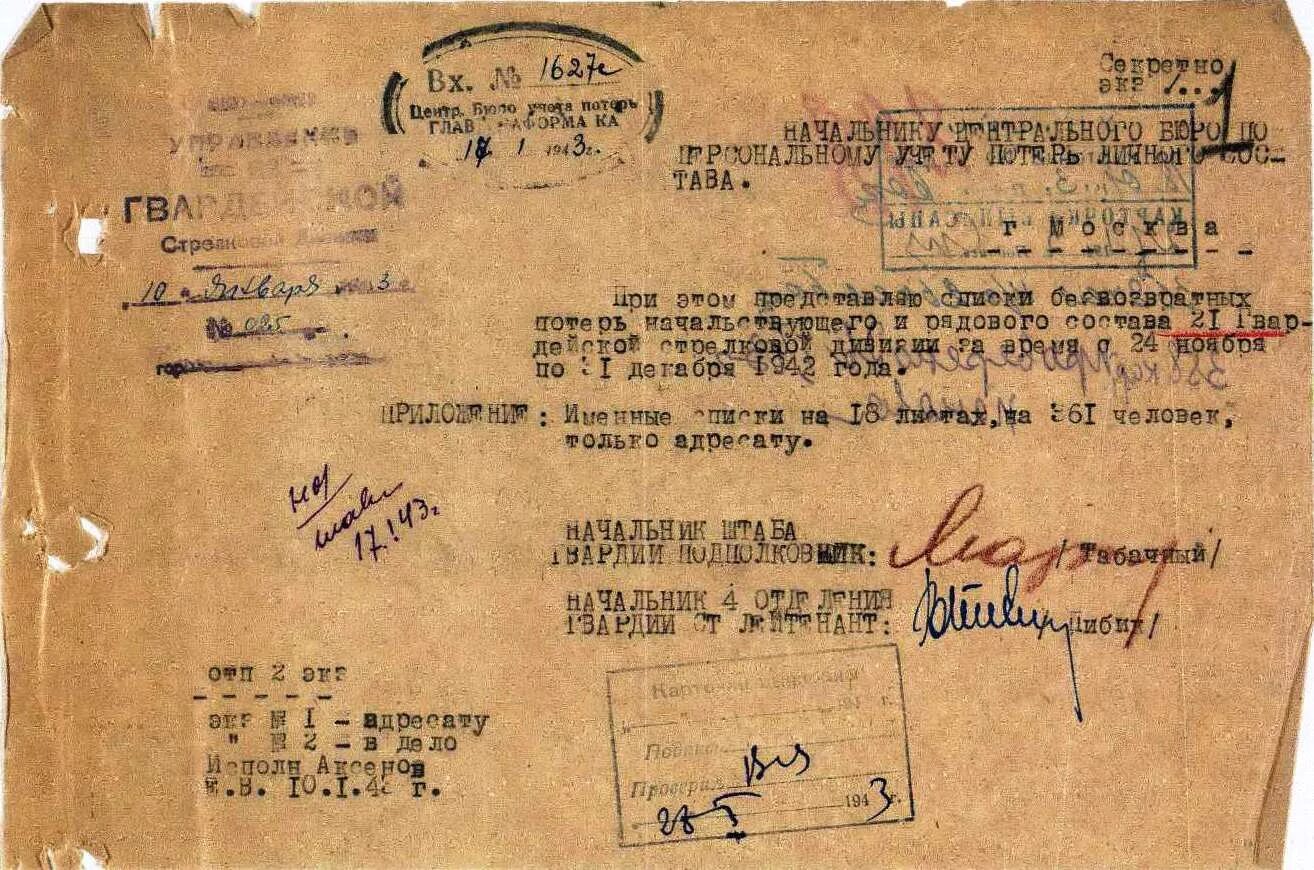 Секретно
экз 1...
Вх. № 1627с
Центр. Бюро учета потерь
ГЛАВ КА
17 1 1943г.
УПРАВЛЕНИЕ
ГВАРДЕЙСКОЙ
Стрелковой Дивизии
10 " Января 3
№ 025
НАЧАЛЬНИКУ ЦЕНТРАЛЬНОГО БЮРО ПО
ПЕРСОНАЛЬНОМУ УЧЕТУ ПОТЕРЬ ЛИЧНОГО СОС-
ТАВА.
г Москва
КАРТОЧКИ ВЫПИСАНЫ
При этом представляю списки безвозвратных
потерь начальствующего и рядового состава 21 Гвар-
дейской стрелковой дивизии за время с 24 ноября
по 31 декабря 1942 года.
ПРИЛОЖЕНИЕ: Именные списки на 18 листах, на 361 человек,
только адресату.
17.I 43г
НАЧАЛЬНИК ШТАБА
ГВАРДИИ ПОДПОЛКОВНИК: /Табачный/
НАЧАЛЬНИК 4 ОТДЕЛЕНИЯ
ГВАРДИИ СТ ЛЕЙТЕНАНТ:
отп 2 экз
экз № 1 - адресату
" № 2 - в дело
Исполн Аксенов
10.I.43 г.
Карточки
Проверил
28 I 1943г.